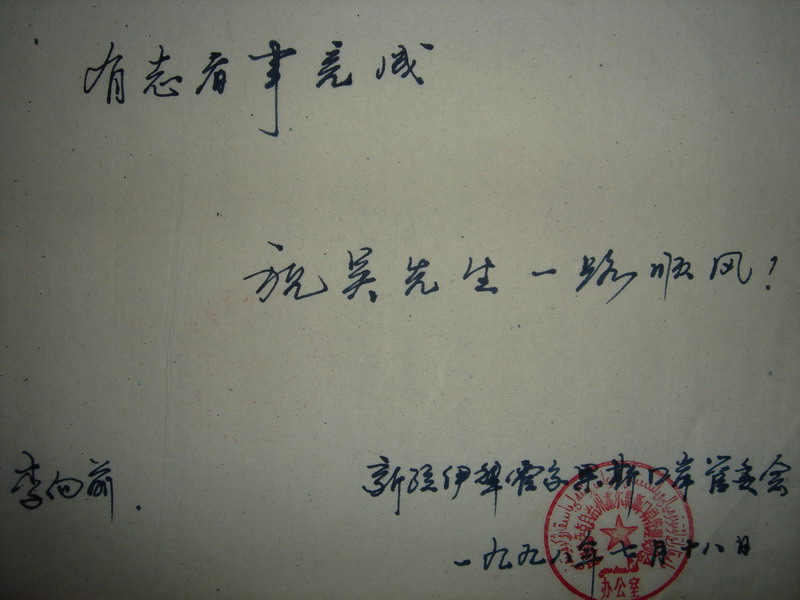 有志者事竟成
祝吴先生一路顺风!
李向前.
新疆伊犁霍尔果斯口岸管委会
一九九八年七月十八日
办公室